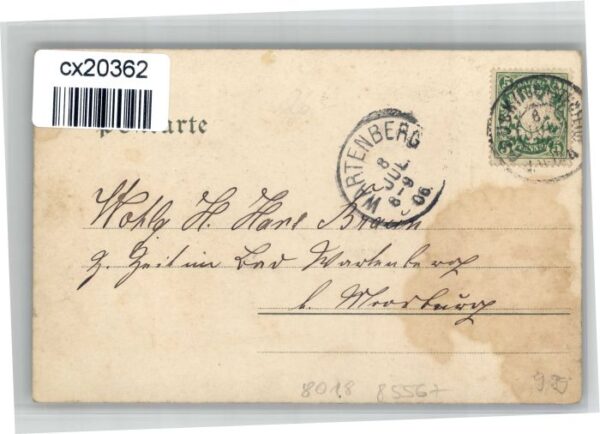 cx20362
Postkarte
5 5
WARTENBERG
8
JUL
8-9
06.
Wohlg H. Hans Braun
z. Zeit im Bad Wartenberg
b. Moosburg
8018 85567